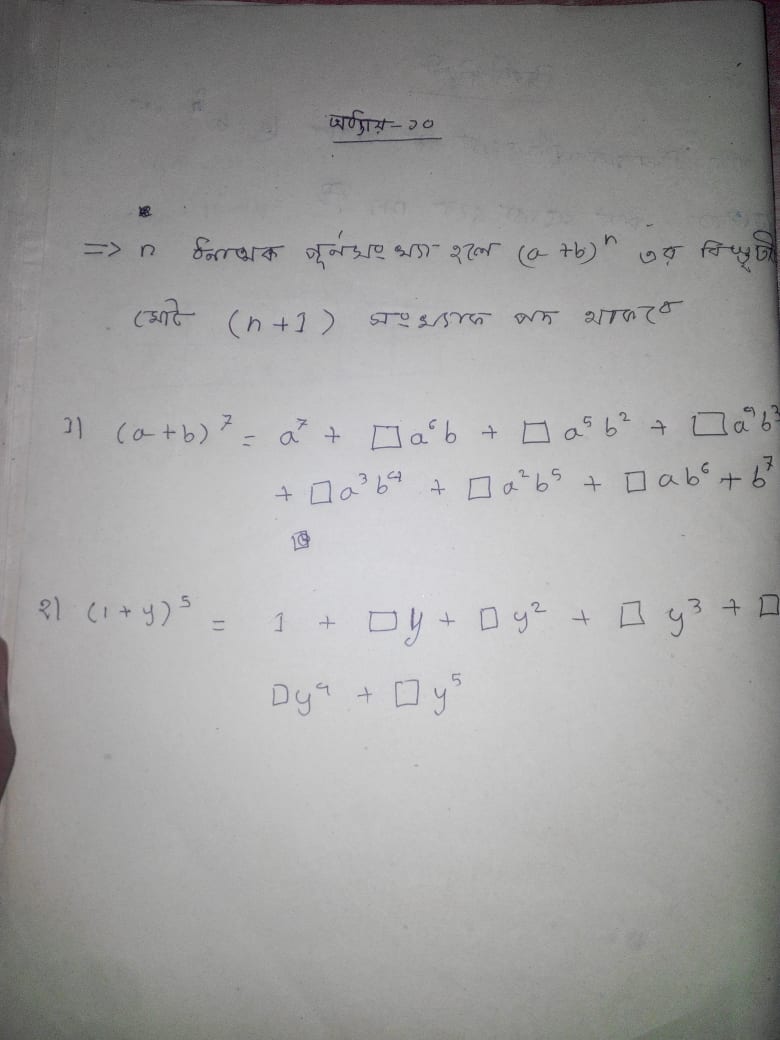 অধ্যায়-১০
=> n ধনাত্মক পূর্নসংখ্যা হলে (a+b)ⁿ এর বিস্তৃতি
মোট (n+1) সংখ্যক পদ থাকবে
১) (a+b)⁷ = a⁷ + □a⁶b + □a⁵b² + □a⁴b³
+ □a³b⁴ + □a²b⁵ + □ab⁶ + b⁷
২) (1+y)⁵ = 1 + □y + □y² + □y³ + □
□y⁴ + □y⁵